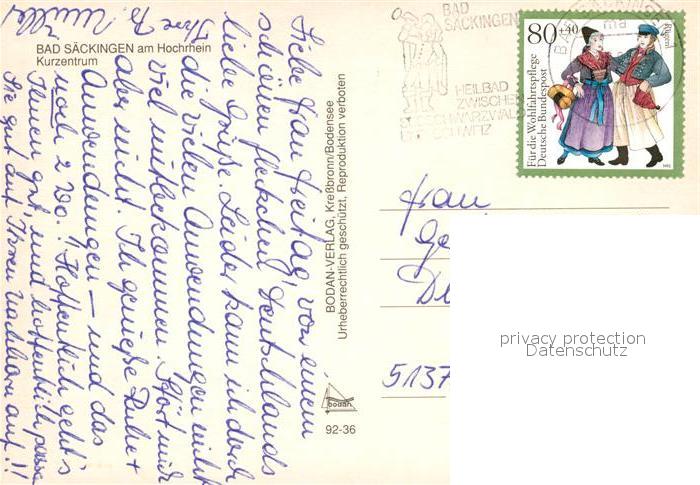 BAD SÄCKINGEN am Hochrhein
Kurzentrum
Liebe Frau Freitag, von einem
schönen Fleckchen Deutschlands
liebe Grüße. Leider kann ich durch
die vielen Anwendungen nicht
viel mitbekommen. Stört mich
aber nicht. Ich genieße Ruhe +
Anwendungen – und das
noch 2 Wo.! Hoffentlich geht's
Ihnen gut, und hoffentlich passen
Sie gut auf Ihren auf!!
Ihre
BODAN-VERLAG, Kreßbronn/Bodensee
Urheberrechtlich geschützt, Reproduktion verboten
bodan
92-36
BAD
SÄCKINGEN
HEILBAD
ZWISCHEN
SCHWARZWALD
SCHWEIZ
80+40
Rügen
Für die Wohlfahrtspflege
Deutsche Bundespost
1993
Frau
5137
privacy protection
Datenschutz